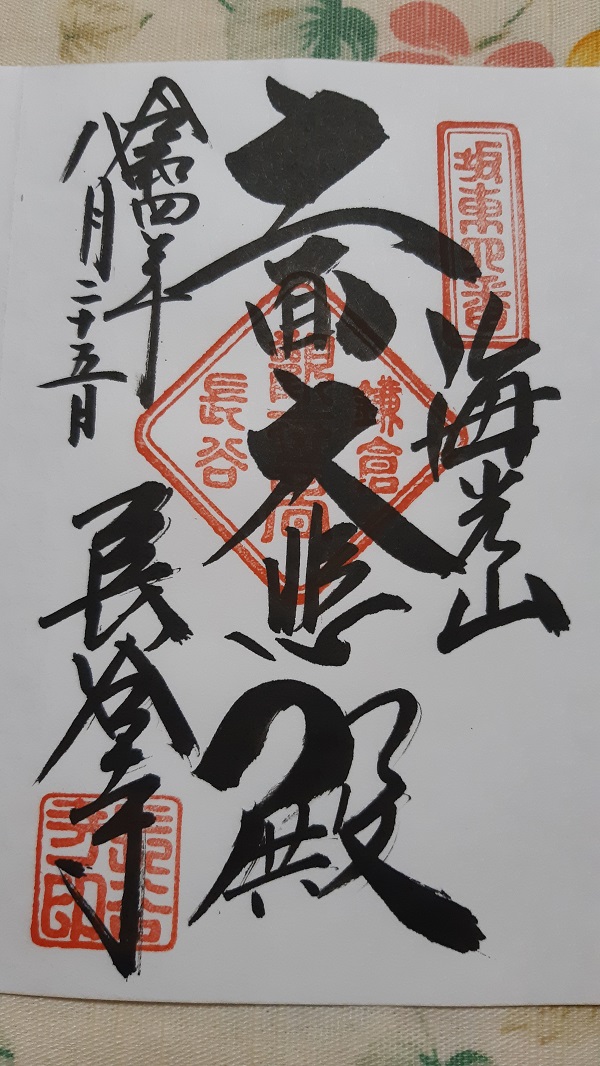 坂東四番
海光山
十一面大悲殿
鎌倉
長谷
令和四年
八月二十五日
長谷寺
長谷寺印